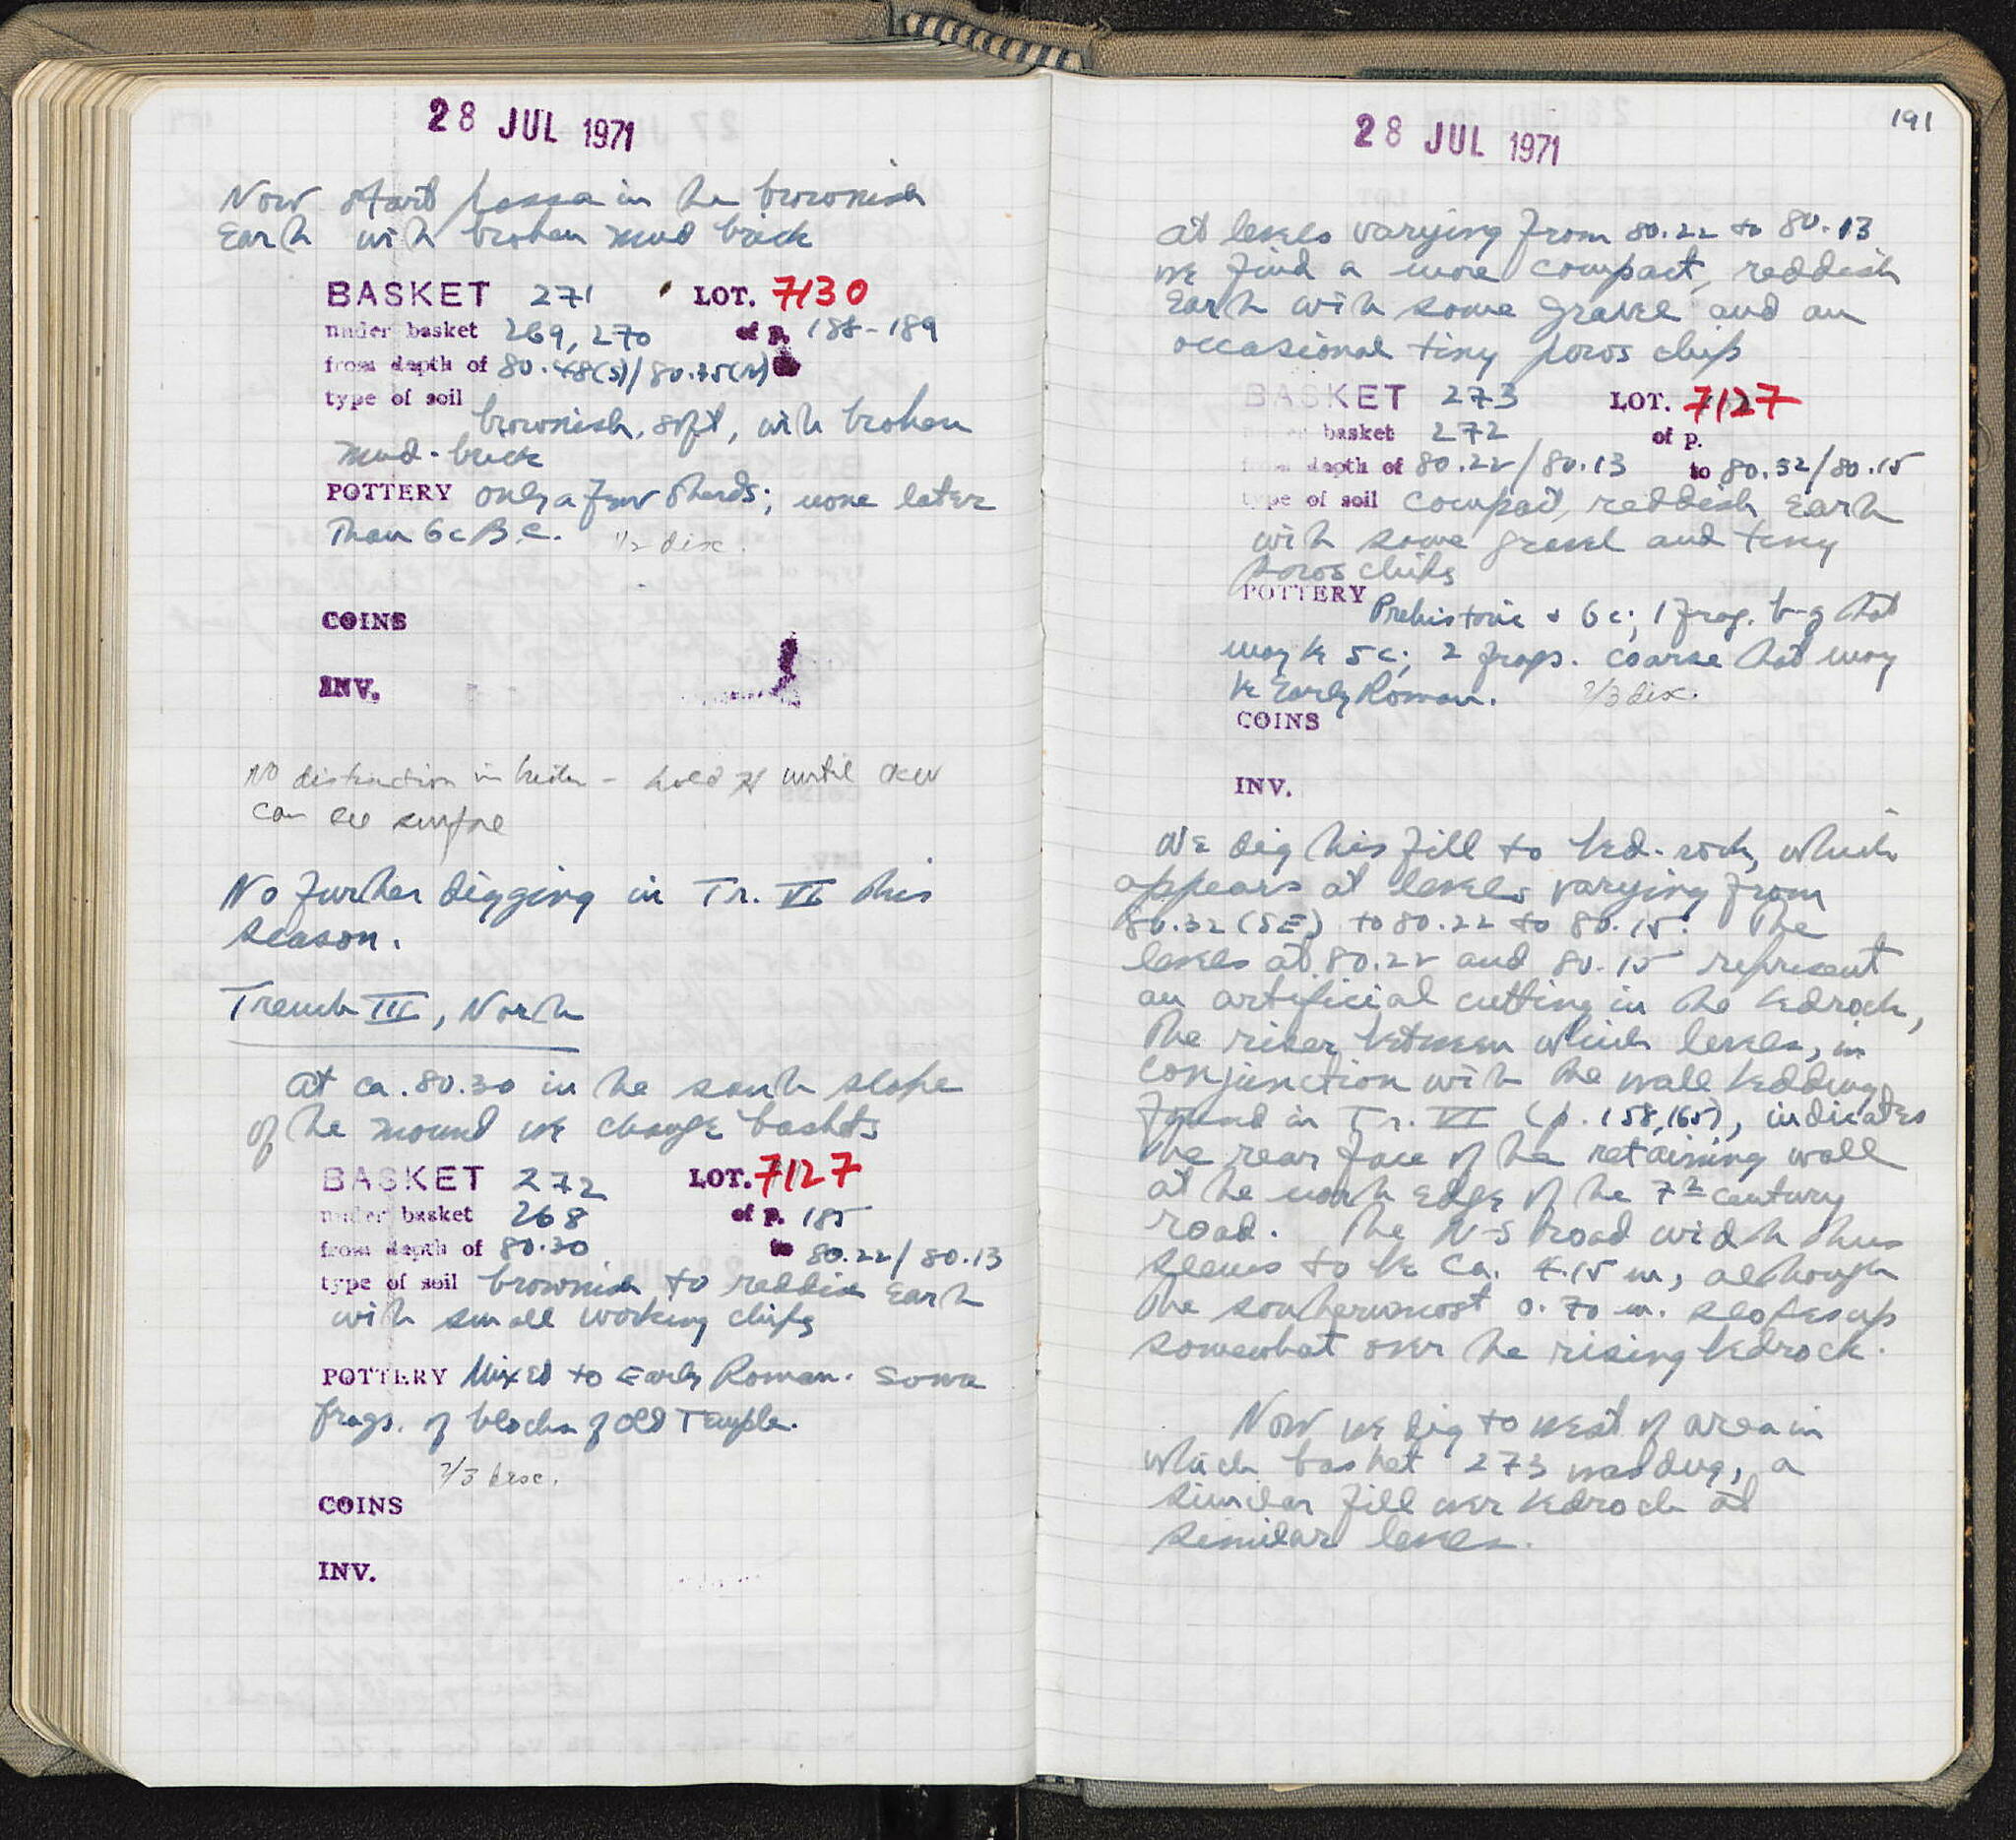 28 JUL 1971
Now start passa in the brownish
Earth with broken mud brick
BASKET 271 LOT. 7130
under basket 269, 270 of p. 188-189
from depth of 80.48(S)/80.35(N)
type of soil
brownish, soft, with broken
mud-brick
POTTERY only a few sherds; none later
Than 6c B.C. 1/2 disc.
COINS
INV.
No distinction in - hold until
can see surface
No further digging in Tr. VI this
season.
Trench III, North
At ca. 80.30 in the south slope
of the mound we change baskets
BASKET 272 LOT. 7127
under basket 268 of p. 185
from depth of 80.30 to 80.22/80.13
type of soil brownish to reddish Earth
with small working chips
POTTERY Mixed to Early Roman. Some
frags. of blocks of Old Temple.
2/3 disc.
COINS
INV.
191
28 JUL 1971
At levels varying from 80.22 to 80.13
we find a more compact, reddish
Earth with some gravel and an
occasional tiny poros chip
BASKET 273 LOT. 7127
under basket 272 of p.
from depth of 80.22/80.13 to 80.32/80.15
type of soil compact, reddish Earth
with some gravel and tiny
poros chips
POTTERY
Prehistoric & 6c; 1 frag. b-g that
may be 5c; 2 frags. coarse that may
be Early Roman. 2/3 disc.
COINS
INV.
We dig this fill to bed-rock, which
appears at levels varying from
80.32 (SE) to 80.22 to 80.15. The
levels at 80.22 and 80.15 represent
an artificial cutting in the bedrock,
the riser between which levels, in
conjunction with the wall bedding
found in Tr. VI (p. 158, 165), indicates
the rear face of the retaining wall
at the north edge of the 7th century
road. The N-S road width thus
seems to be ca. 4.15 m, although
the southernmost 0.70 m. slopes up
somewhat over the rising bedrock.
Now we dig to west of area in
which basket 273 was dug, a
similar fill over bedrock at
similar levels.